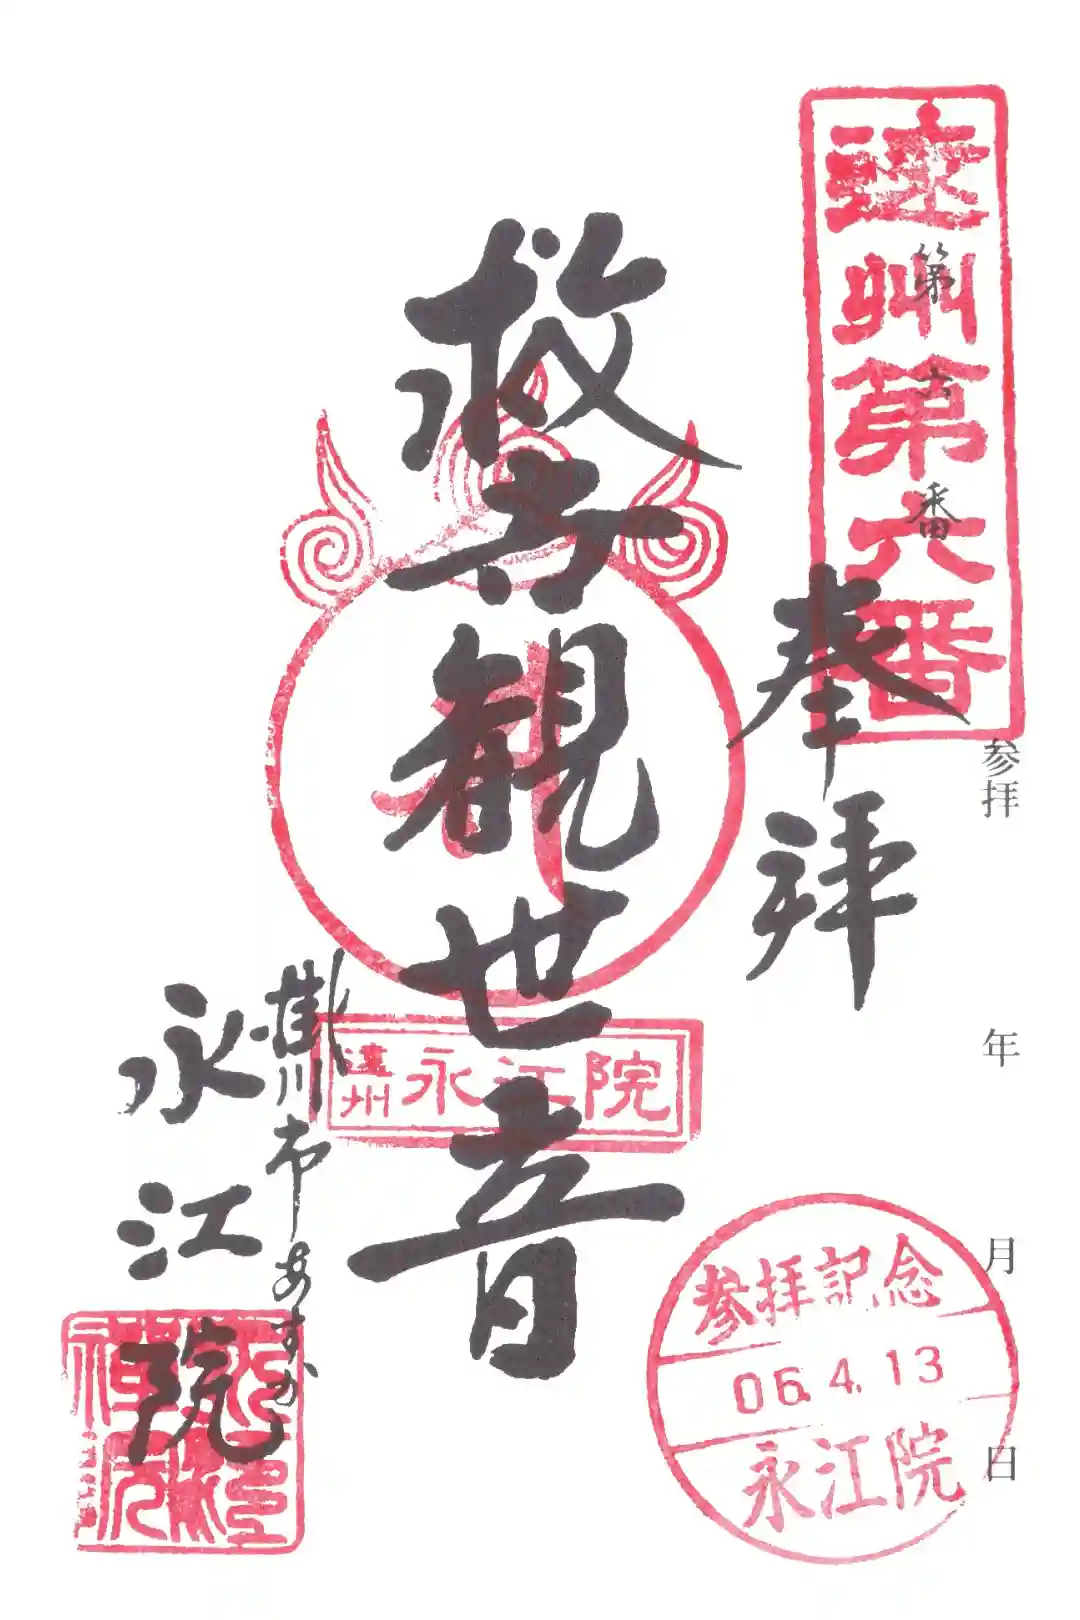 遠州第六番
第六番
奉拝
参拝 年 月 日
救世観世音
遠州 永江院
掛川市あすか
永江院
参拝記念
06.4.13
永江院